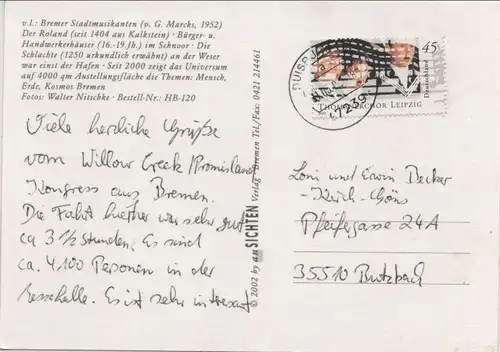 v.l.: Bremer Stadtmusikanten (v. G. Marcks, 1952)
Der Roland (seit 1404 aus Kalkstein) · Bürger- u.
Handwerkerhäuser (16.-19.Jh.) im Schnoor · Die
Schlachte (1250 urkundlich erwähnt) an der Weser
war einst der Hafen · Seit 2000 zeigt das Universum
auf 4000 qm Austellungsfläche die Themen: Mensch,
Erde, Kosmos Bremen
Fotos: Walter Nitschke · Bestell-Nr.: HB-120
Viele herzliche Grüße
vom Willow Creek Promiseland
Kongress aus Bremen.
Die Fahrt hierher war sehr gut
ca 3 ½ Stunden. Es sind
ca. 4100 Personen in der
Messehalle. Es ist sehr interessant
© 2002 by anSICHTEN Verlag · Bremen Tel./Fax: 0421 214461
DUISBURG
47239
45
Deutschland
THOMANERCHOR LEIPZIG
Loni und Erwin Becker
Pfeifergasse 24A
35510 Butzbach